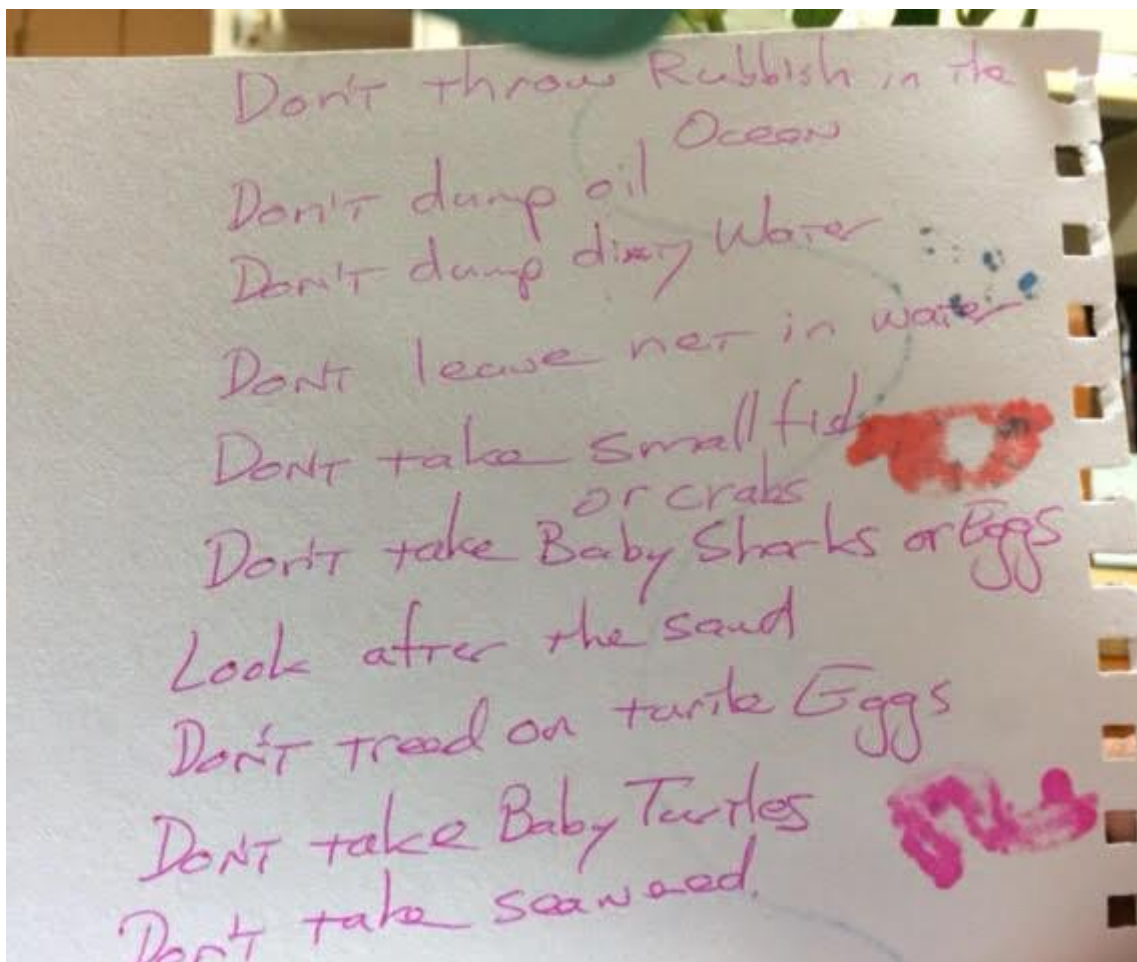 Don't throw Rubbish in the
Ocean
Don't dump oil
Don't dump dirty Water
DONT leave net in water
DONT take small fish
or crabs
Don't take Baby Sharks or Eggs
Look after the sand
Don't tread on turtle Eggs
DONT take Baby Turtles
Don't take seaweed.